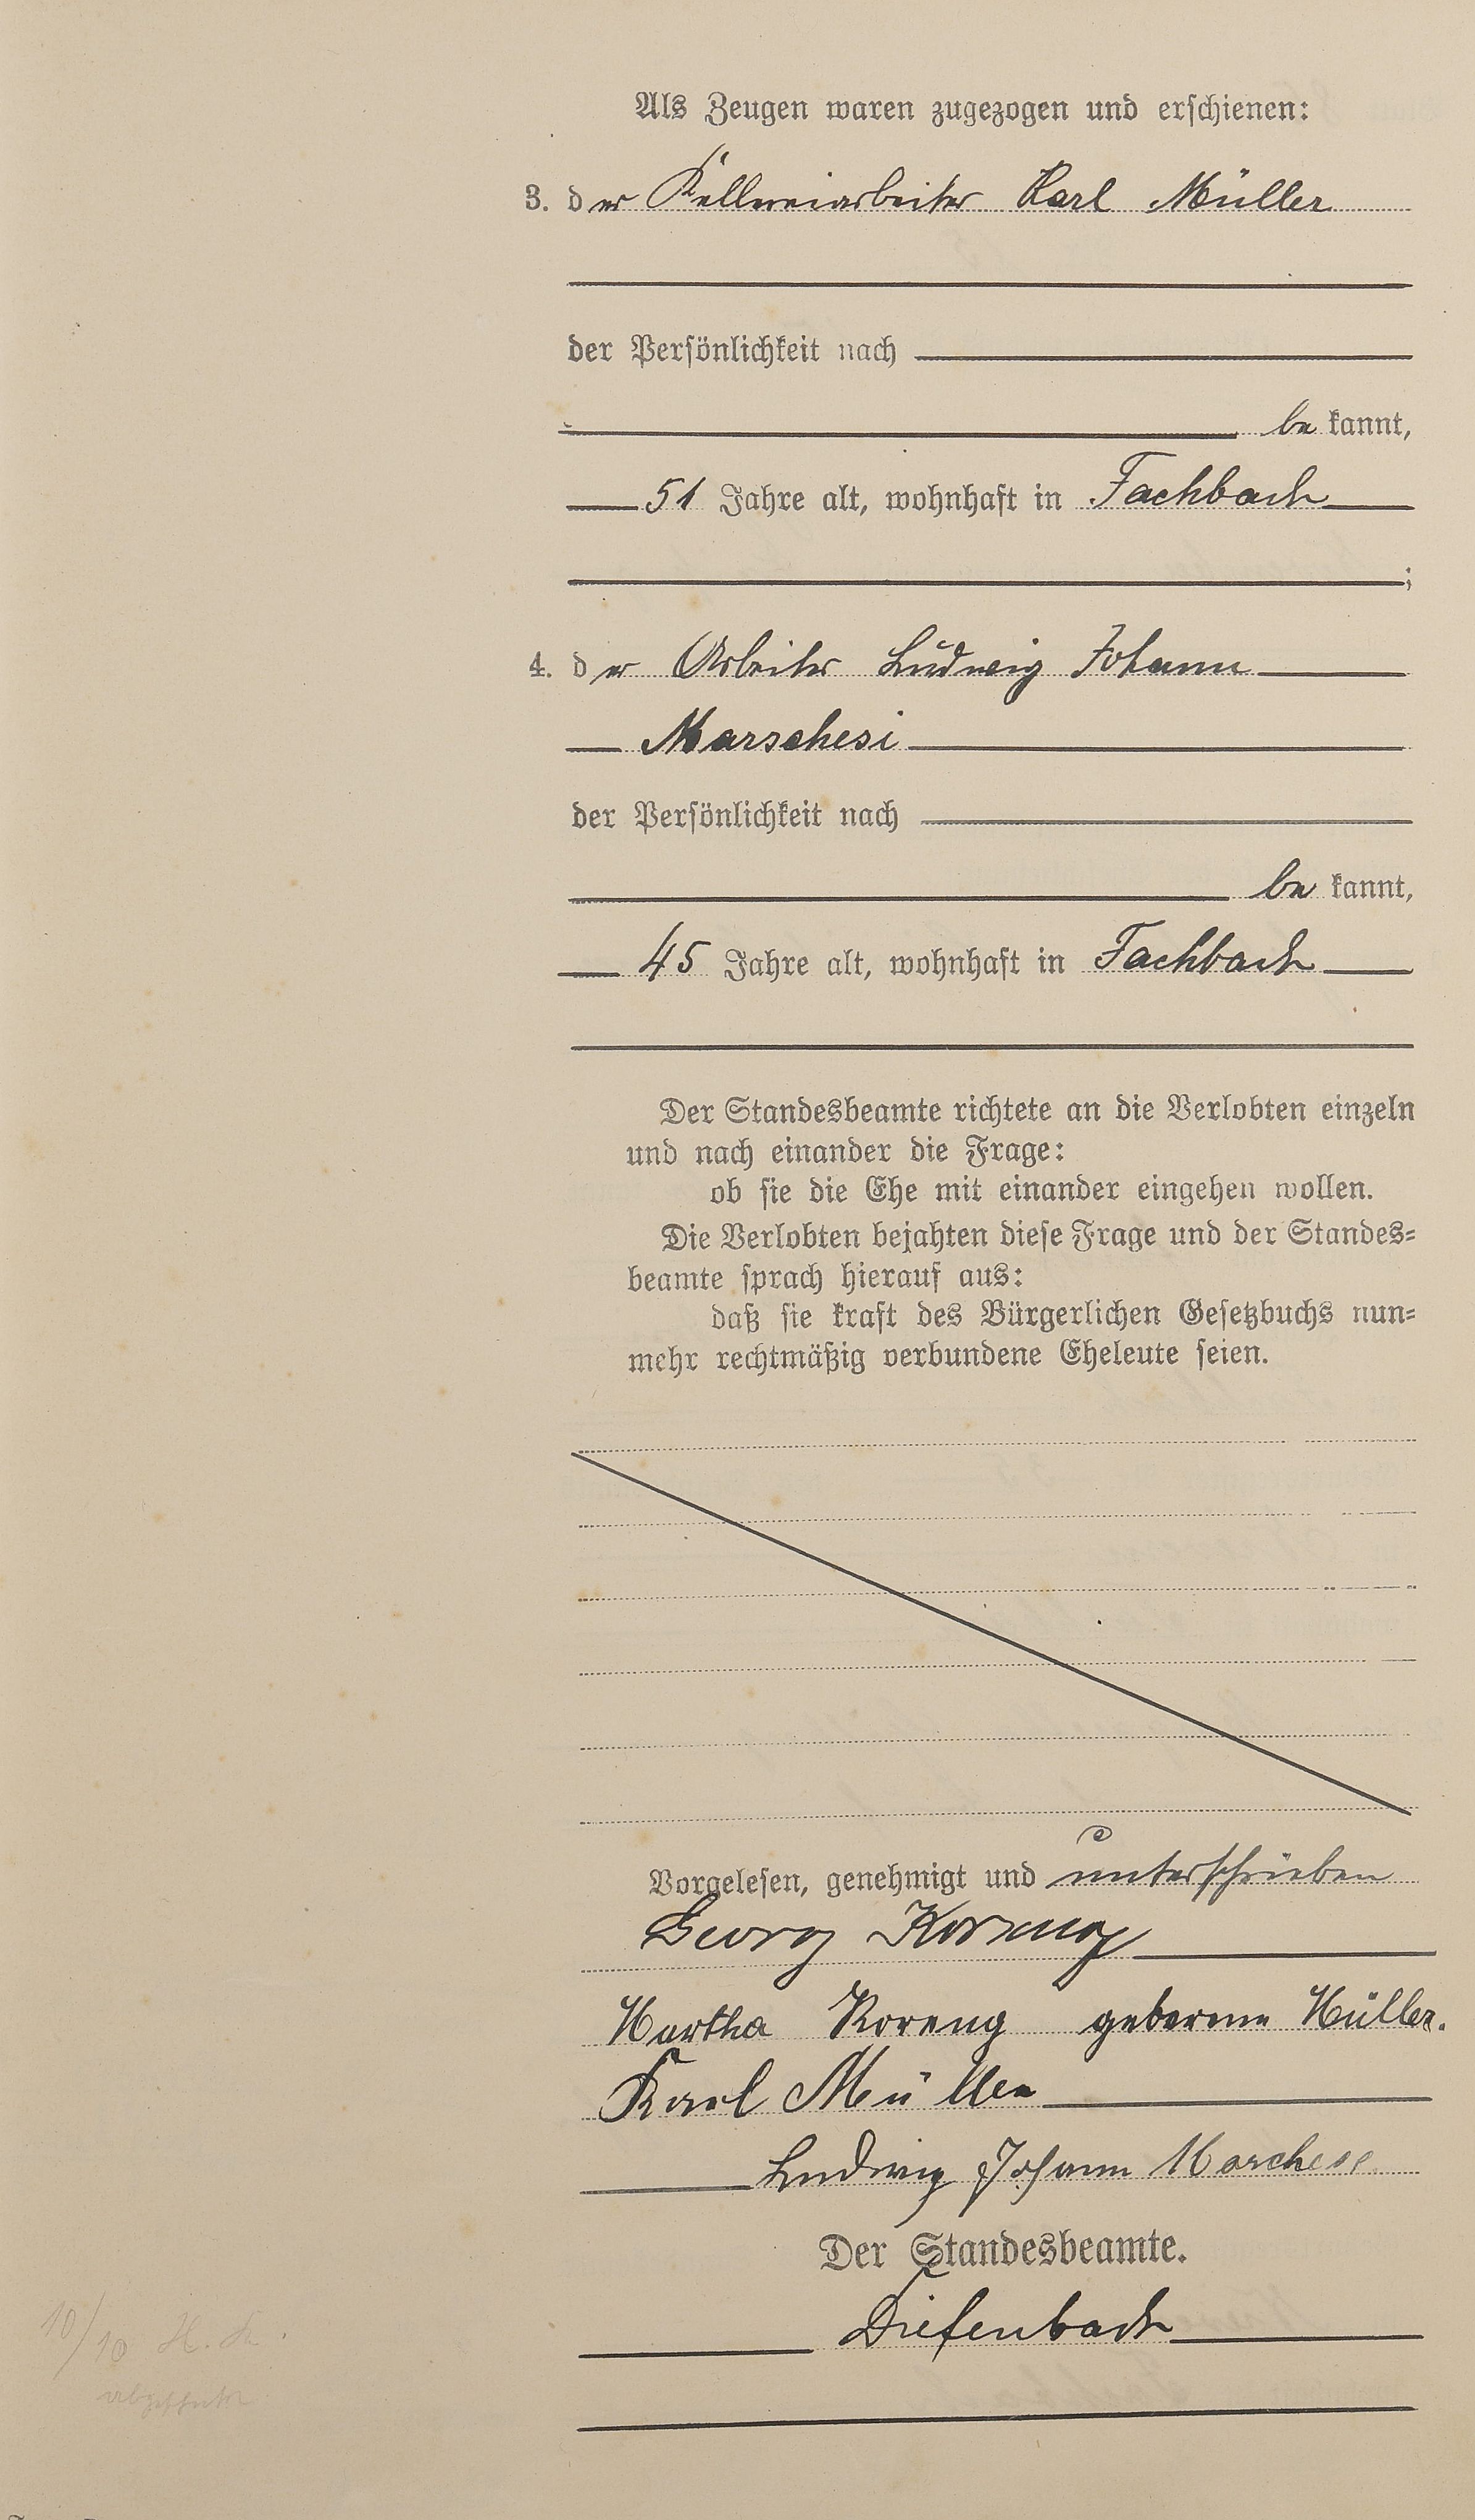 Als Zeugen waren zugezogen und erschienen:
3. der Kellereiarbeiter Karl Müller
der Persönlichkeit nach
bekannt,
51 Jahre alt, wohnhaft in Fachbach
;
4. der Arbeiter Ludwig Johann
Marschesi
der Persönlichkeit nach
bekannt,
45 Jahre alt, wohnhaft in Fachbach
Der Standesbeamte richtete an die Verlobten einzeln
und nach einander die Frage:
ob sie die Ehe mit einander eingehen wollen.
Die Verlobten bejahten diese Frage und der Standes=
beamte sprach hierauf aus:
daß sie kraft des Bürgerlichen Gesetzbuchs nun=
mehr rechtmäßig verbundene Eheleute seien.
Vorgelesen, genehmigt und unterschrieben
Georg Koreng
Martha Koreng geborene Müller.
Karl Müller
Ludwig Johann Marchese
Der Standesbeamte.
Diefenbach
10/10